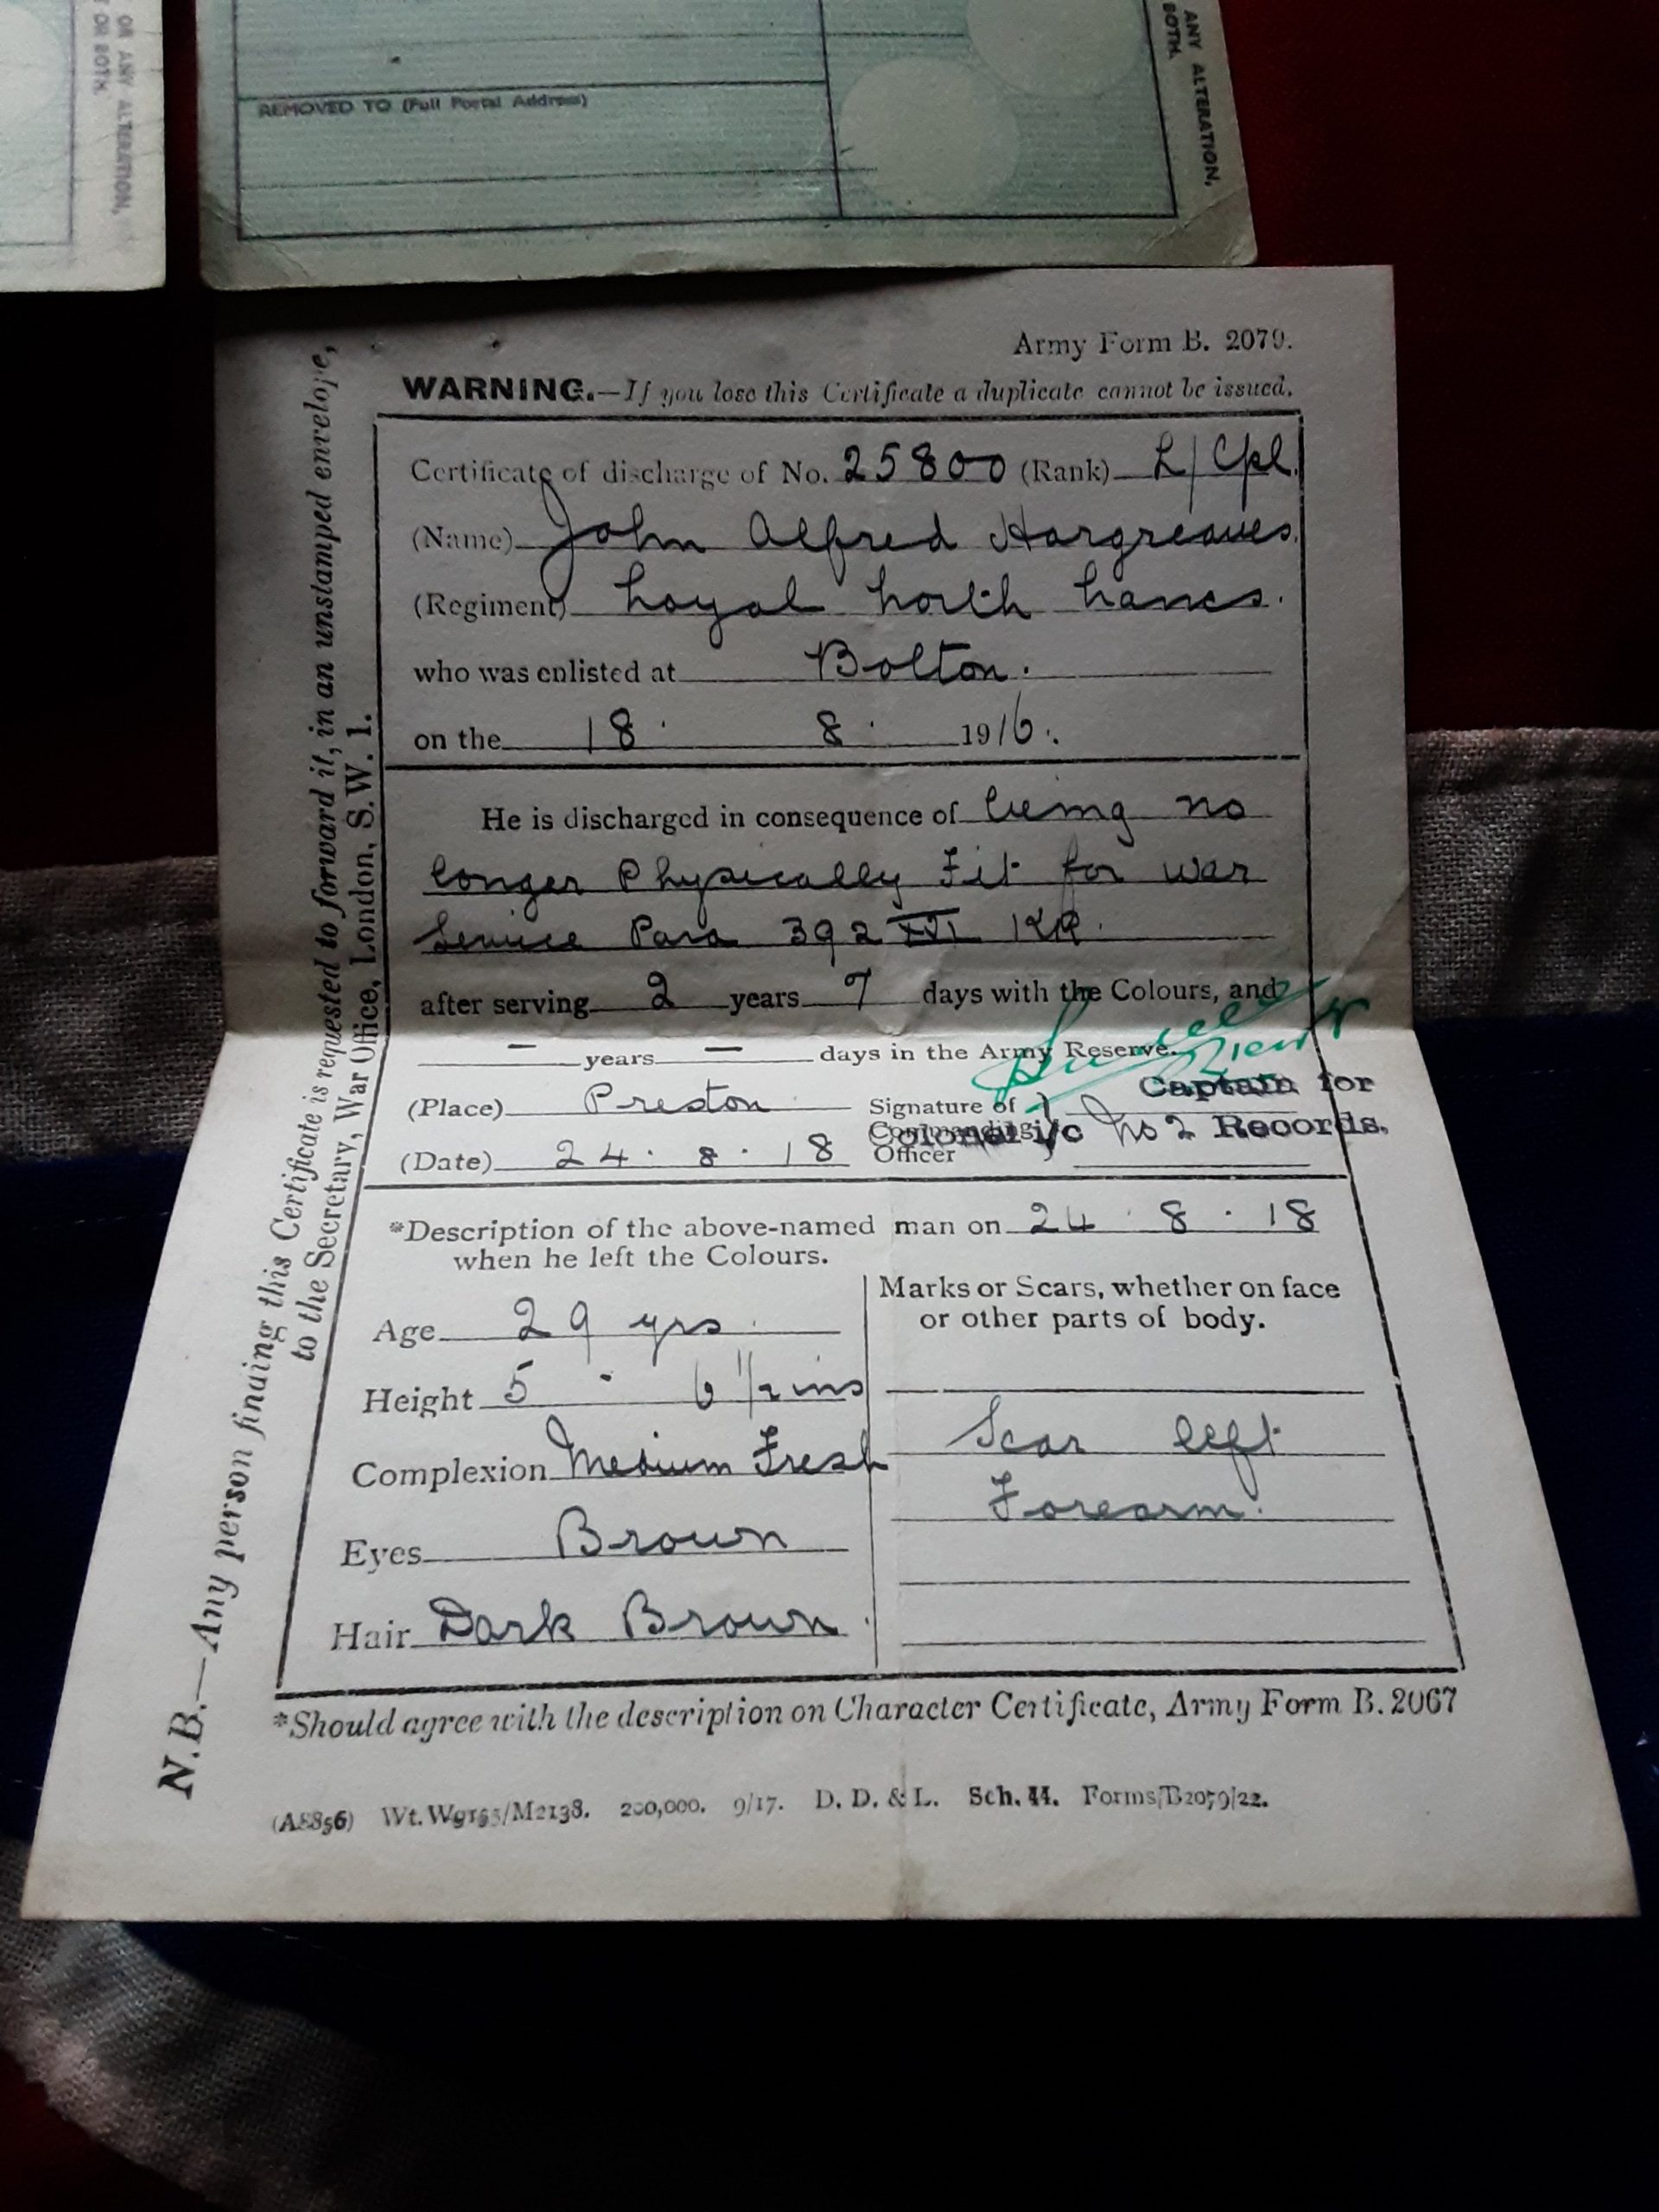 OR ANY ALTERATION,
T OR BOTH.
REMOVED TO (Full Postal Address)
ANY ALTERATION,
BOTH.
Army Form B. 2079.
WARNING.—If you lose this Certificate a duplicate cannot be issued.
Certificate of discharge of No. 25800 (Rank) L/Cpl.
(Name) John Alfred Hargreaves.
(Regiment) Loyal North Lancs.
who was enlisted at Bolton.
on the 18. 8. 1916.
He is discharged in consequence of being no
longer Physically Fit for War
Service Para 392 XVI KR.
after serving 2 years 7 days with the Colours, and
— years — days in the Army Reserve.
(Place) Preston
Signature of
Commanding
Officer
Captain for
Colonel i/c No 2 Records.
(Date) 24. 8. 18
*Description of the above-named man on 24. 8. 18
when he left the Colours.
Age 29 yrs.
Height 5 - 6 1/2 ins
Complexion Medium Fresh
Eyes Brown
Hair Dark Brown.
Marks or Scars, whether on face
or other parts of body.
Scar left
Forearm.
*Should agree with the description on Character Certificate, Army Form B. 2067
(A8856) Wt. W9165/M2138. 200,000. 9/17. D. D. & L. Sch. 44. Forms/B2079/22.
N.B.—Any person finding this Certificate is requested to forward it, in an unstamped envelope,
to the Secretary, War Office, London, S.W. 1.